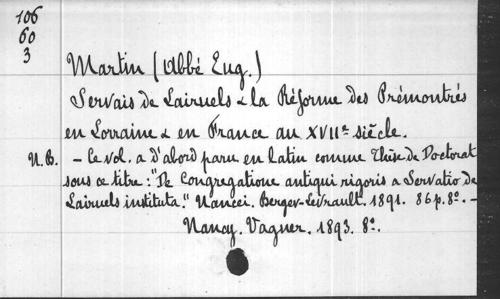 106
60
3
Martin (Abbé Eug.)
Servais de Lairuels & la Réforme des Prémontrés
en Lorraine & en France au XVIIe siècle.
N.B. — Ce vol. a d'abord paru en latin comme Thèse de Doctorat
sous ce titre : "De Congregatione antiqui rigoris a Servatio de
Lairuels instituta." Nancei. Berger-Levrault. 1891. 86 p. 8°. —
Nancy. Vagner. 1893. 8°.